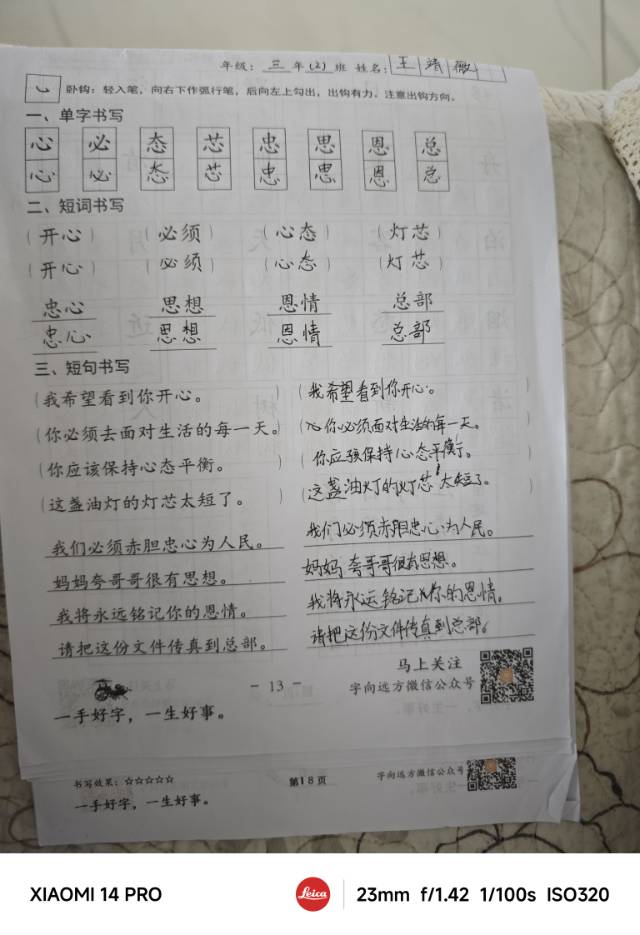 年级：三年(2)班 姓名：王靖薇
卧钩：轻入笔，向右下作弧行笔，后向左上勾出，出钩有力。注意出钩方向。
一、单字书写
心 必 态 芯 忠 思 恩 总
心 必 态 芯 忠 思 恩 总
二、短词书写
（开心）（必须）（心态）（灯芯）
（开心）（必须）（心态）（灯芯）
忠心 思想 恩情 总部
忠心 思想 恩情 总部
三、短句书写
（我希望看到你开心。 （我希望看到你开心。 ）
（你必须去面对生活的每一天。 你必须面对生活的每一天。 ）
（你应该保持心态平衡。 ） （你应该保持心态平衡。 ）
（这盏油灯的灯芯太短了。 ） （这盏油灯的灯芯太短了。 ）
我们必须赤胆忠心为人民。 我们必须赤胆忠心为人民。
妈妈夸哥哥很有思想。 妈妈夸哥哥很有思想。
我将永远铭记你的恩情。 我将永远铭记你的恩情。
请把这份文件传真到总部。 请把这份文件传真到总部。
马上关注
- 13 -
字向远方微信公众号
一手好字，一生好事。
书写效果：☆☆☆☆☆ 第18页 字向远方微信公众号
一手好字，一生好事。
XIAOMI 14 PRO Leica 23mm f/1.42 1/100s ISO320